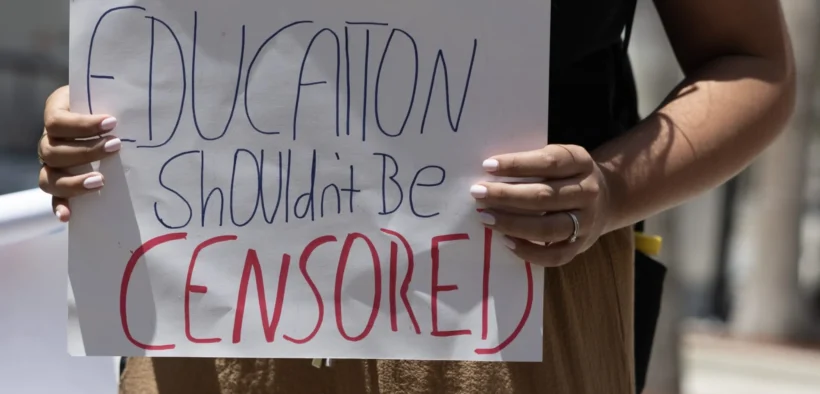 EDUCATION
ShOUldn't BE
CENSORED